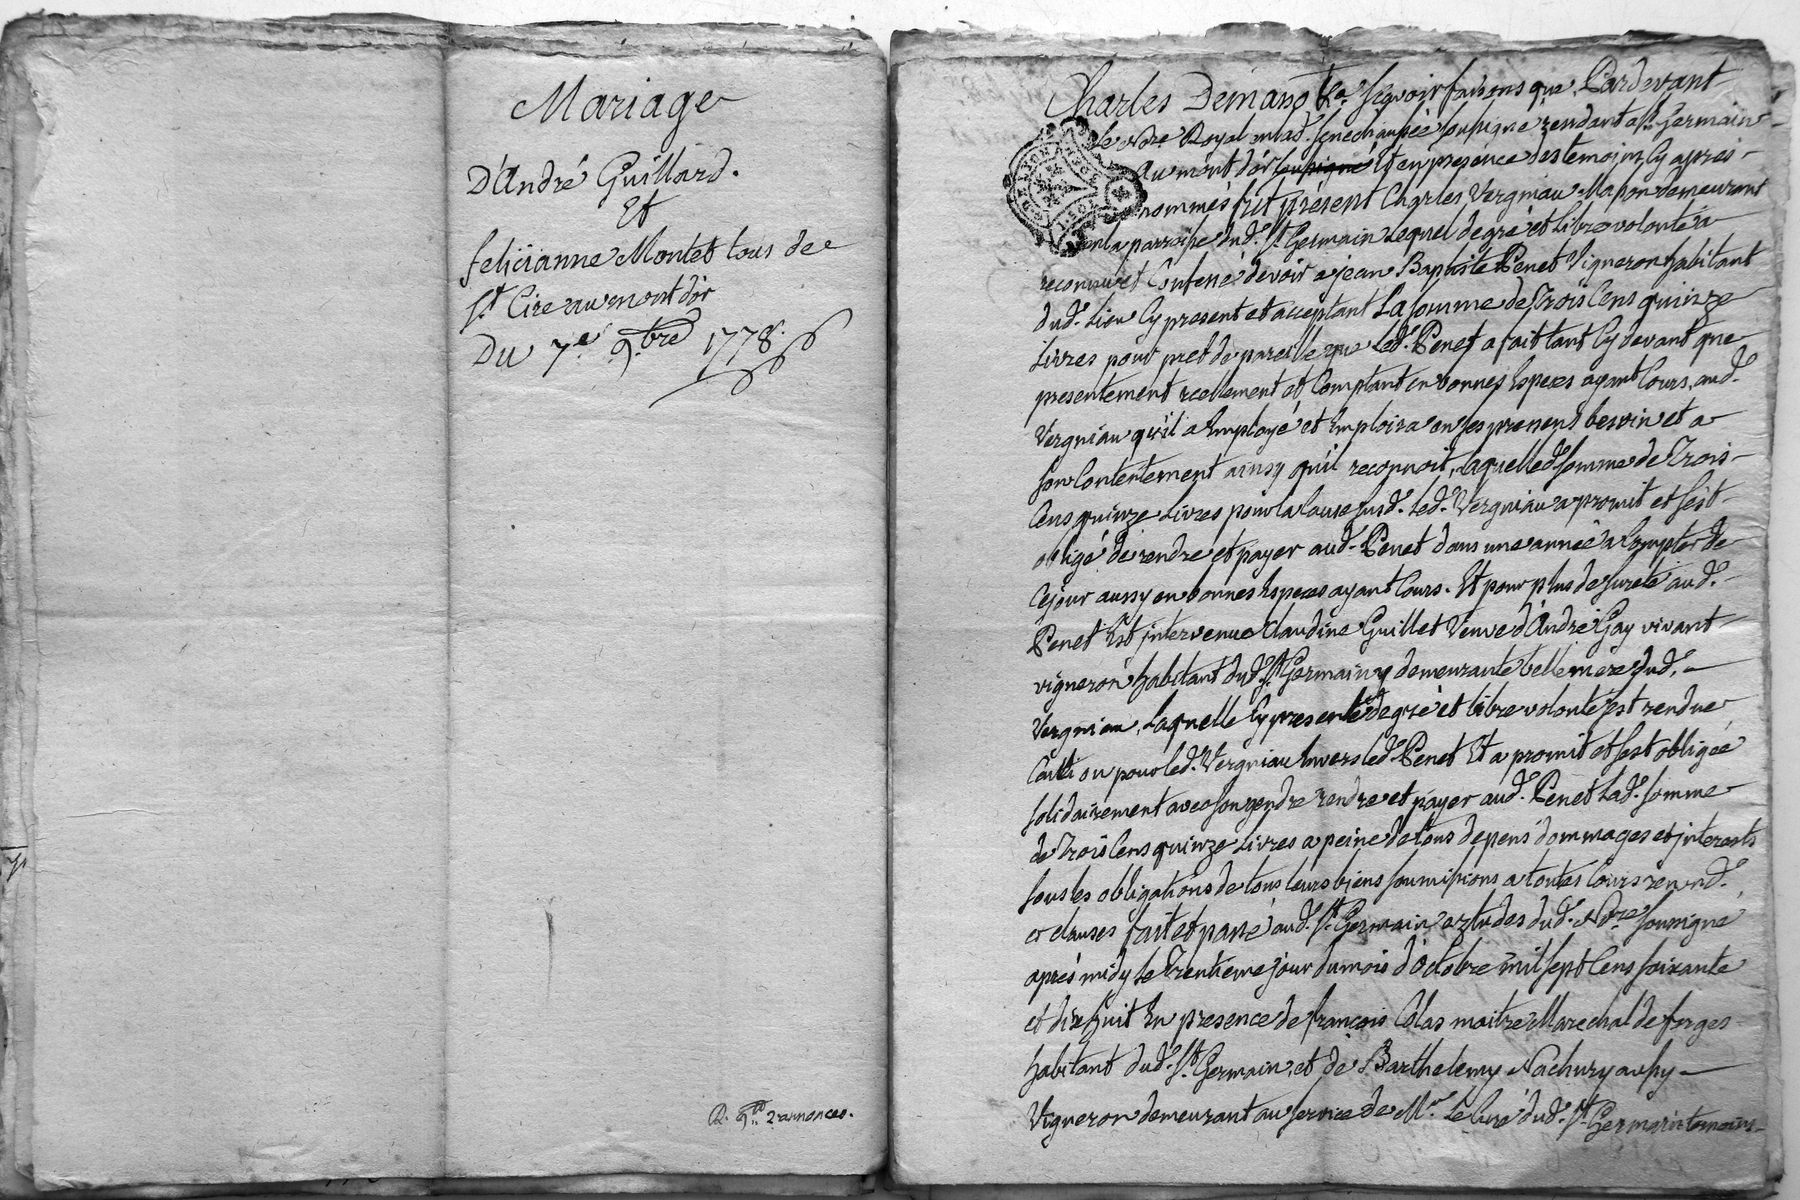 Mariage
D'André Guillard.
Et
felicianne Montet tous de
St. Cire au mont d'or
Du 7e. 9.bre 1778.
R. 9.bre 2 annonces.
Charles Demasso &a. sçavoir faisons que Pardevant
Le Nore Royal en lad. senechaussée soussigné rendant a St Germain
Au mont d'or soussigné Et en presence des temoins Cy apres
nommés fut présent Charles Vergniau Masson demeurant
en la parroisse dud. St Germain Lequel de gré et libre volonté a
reconnu et Confessé devoir a jean Baptiste Penet Vigneron habitant
dud. Lieu Cy present et acceptant La somme de Trois Cens quinze
Livres pour pret de pareille que Led. Penet a fait tant Cy devant que
presentement reellement et Comptant en bonnes Especes ayant Cours, aud.
Vergniau qu'il a Employé et Emploira en ses presens besoin et a
son Contentement ainsy qu'il reconnoit, laquelled. somme de Trois
Cens quinze Livres pour la Cause susd. Led. Vergniau a promit et s'est
obligé de rendre et payer aud. Penet dans une année a Compter de
Cejour aussy en bonnes Especes ayant Cours. Et pour plus de sureté aud.
Penet Est intervenue Claudine Guillet Veuve d'André Gay vivant
vigneron habitant dud. St Germain y demeurante belle mere dud.
Vergniau, Laquelle Cy presente de gré et libre volonté s'est rendue
Caution pour led. Vergniau Envers led. Penet Et a promit et s'est obligée
solidairement avec son gendre rendre et payer aud. Penet Lad. somme
de Trois Cens quinze Livres a peine de tous depens dommages et interests
sous les obligations de tous leurs biens soumissions a toutes Cours renond.
et clauses fait et passé aud. St Germain etudes dud. Nore soussigné
après midy le Trentieme jour du mois d'octobre mil sept Cens soixante
et dix huit En presence de françois Colas maitre Marechal de forges
habitant dud. St Germain, et de Barthelemy Nachury aussy
Vigneron demeurant au service de Mr. Le Curé dud. St Germain temoins